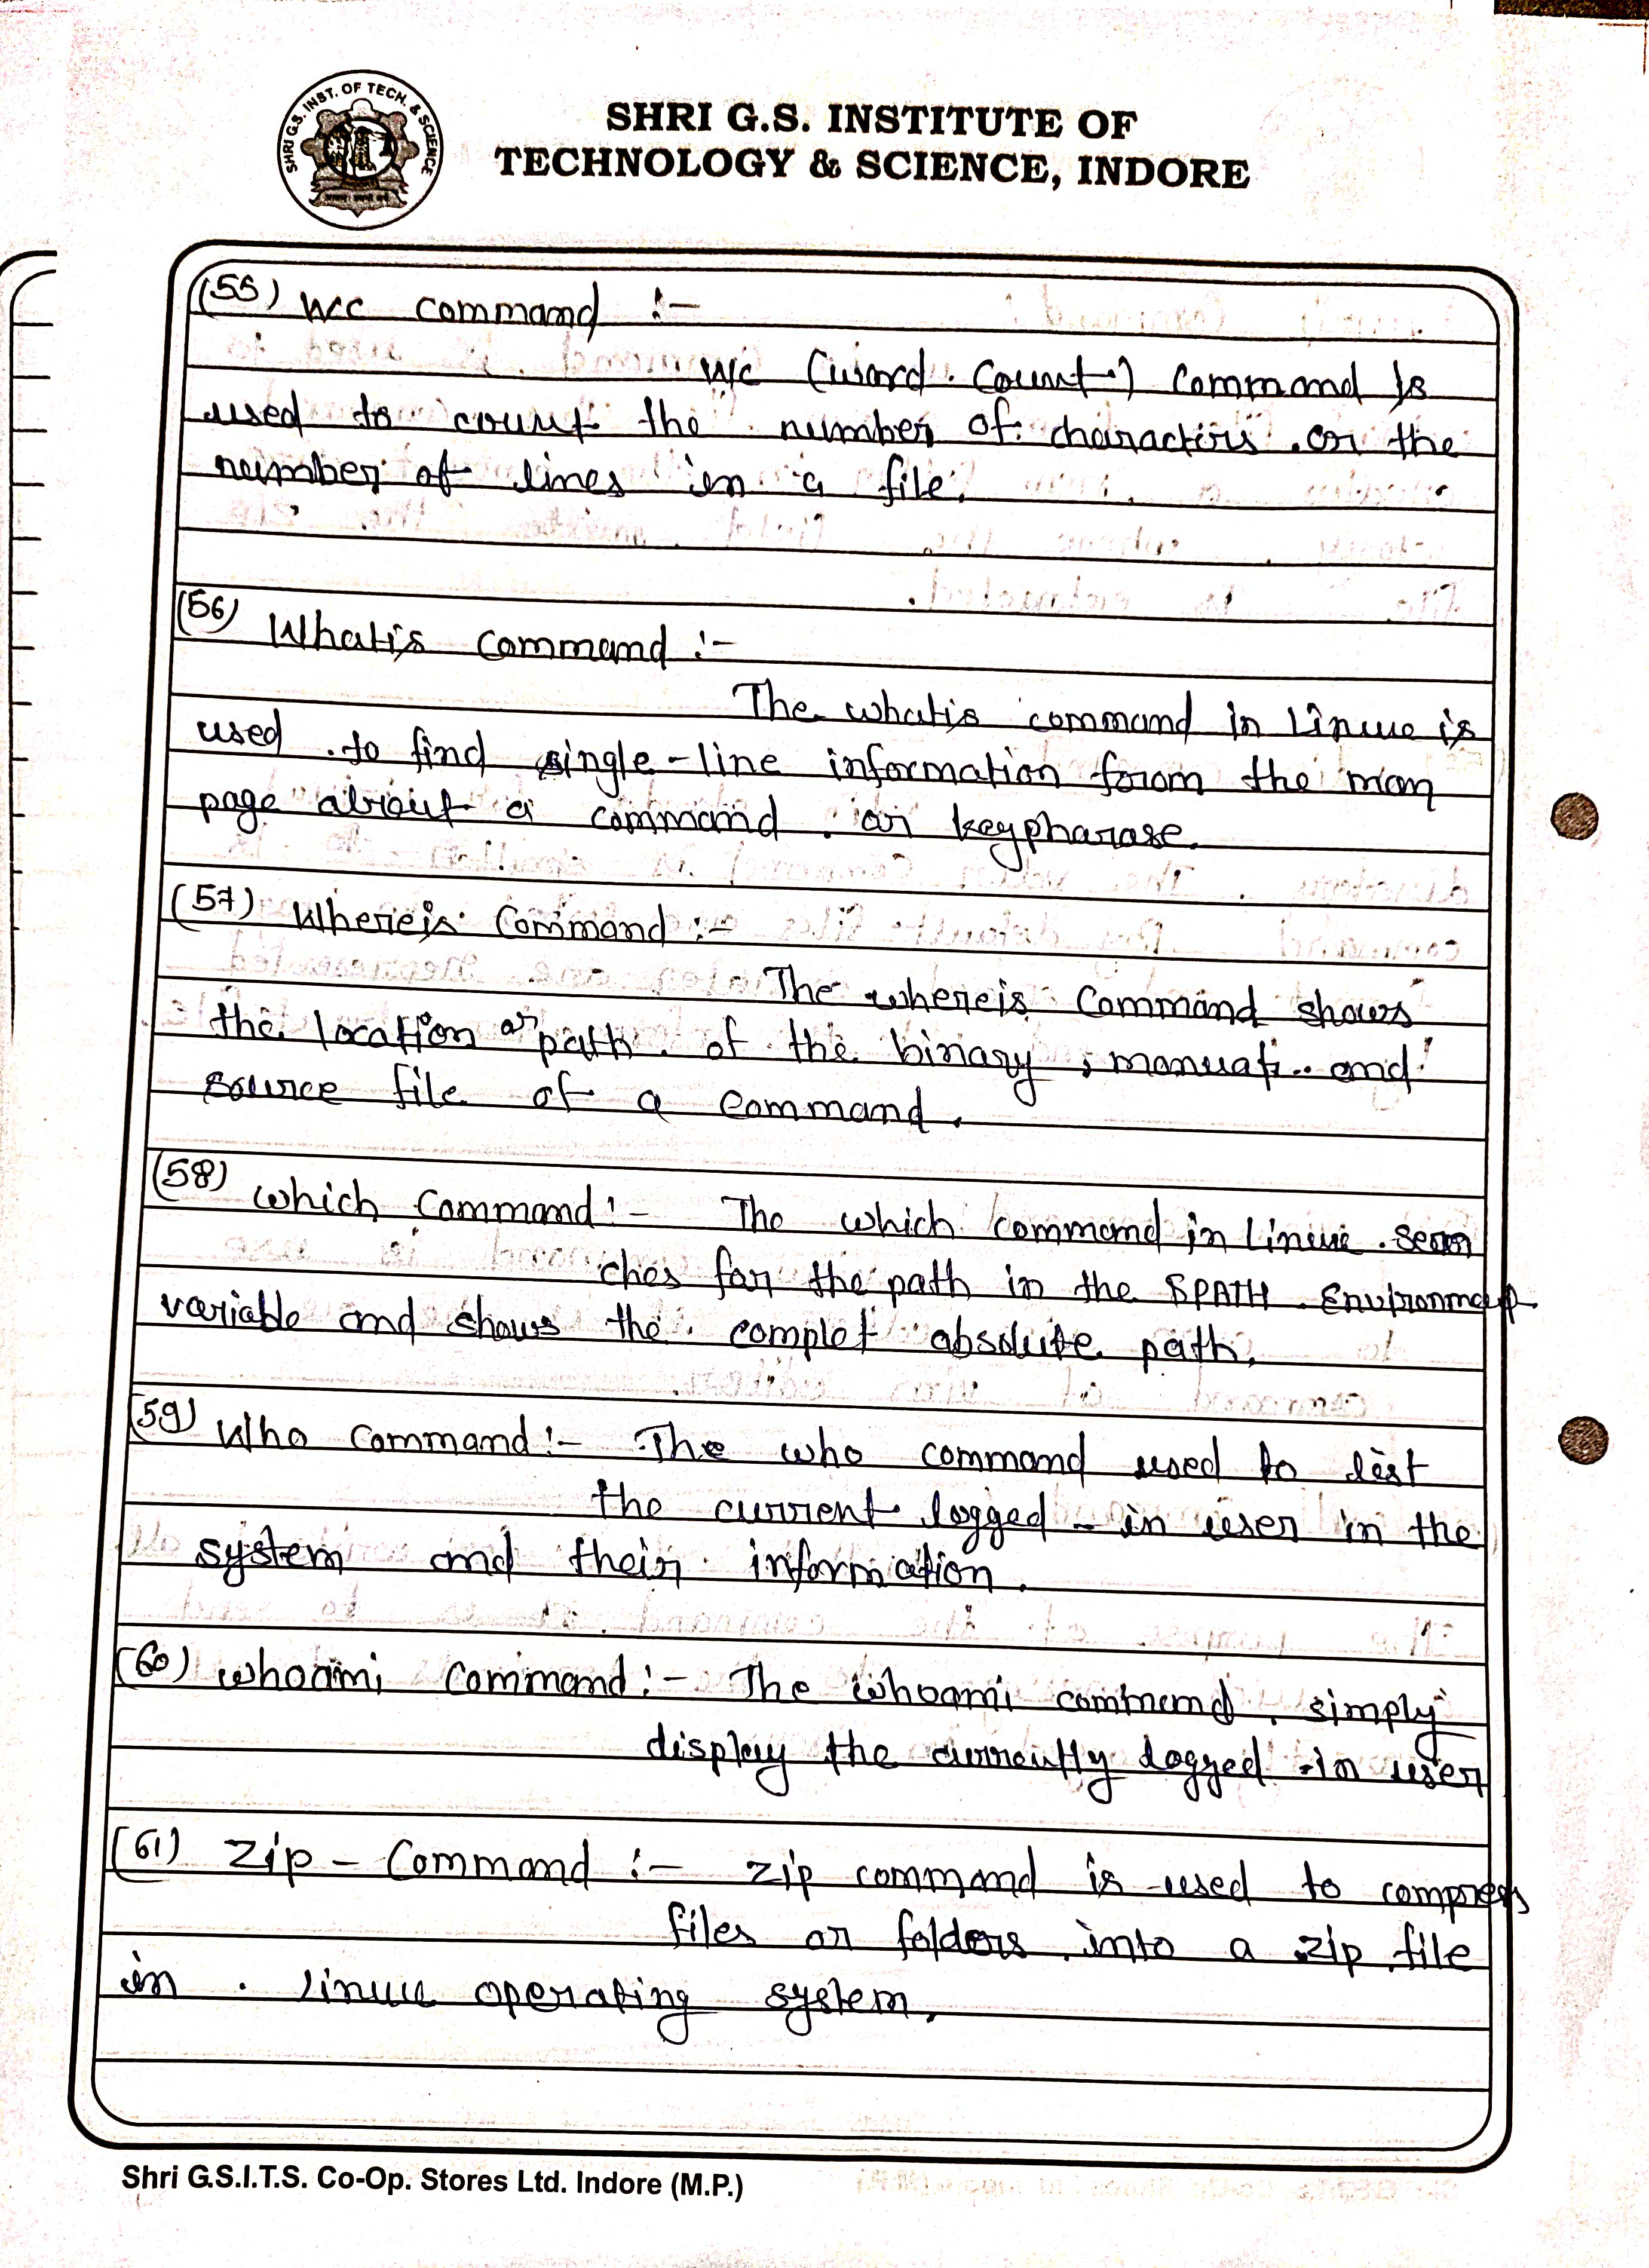 SHRI G.S. INST. OF TECH. & SCIENCE
SHRI G.S. INSTITUTE OF
TECHNOLOGY & SCIENCE, INDORE
(55) wcc command :-
wc (word count) command is
used to count the number of characters or the
number of lines in a file.
(56) Whatis command :-
The whatis command in Linux is
used to find single-line information forom the man
page about a command or keypharase.
(57) Whereis Command :-
The whereis Command shows
the location or path of the binary, manual and
source file of a command.
(58) which Command :- The which command in Linux sear
ches for the path in the $PATH Environment
variable and shows the complet absolute path.
(59) Who command :- The who command used to list
the current logged - in user in the
system and their information.
(60) whoami command :- The whoami command simply
display the currently logged -in user
(61) Zip - Command :- zip command is used to compress
files or folders into a zip file
in linux operating system.
Shri G.S.I.T.S. Co-Op. Stores Ltd. Indore (M.P.)